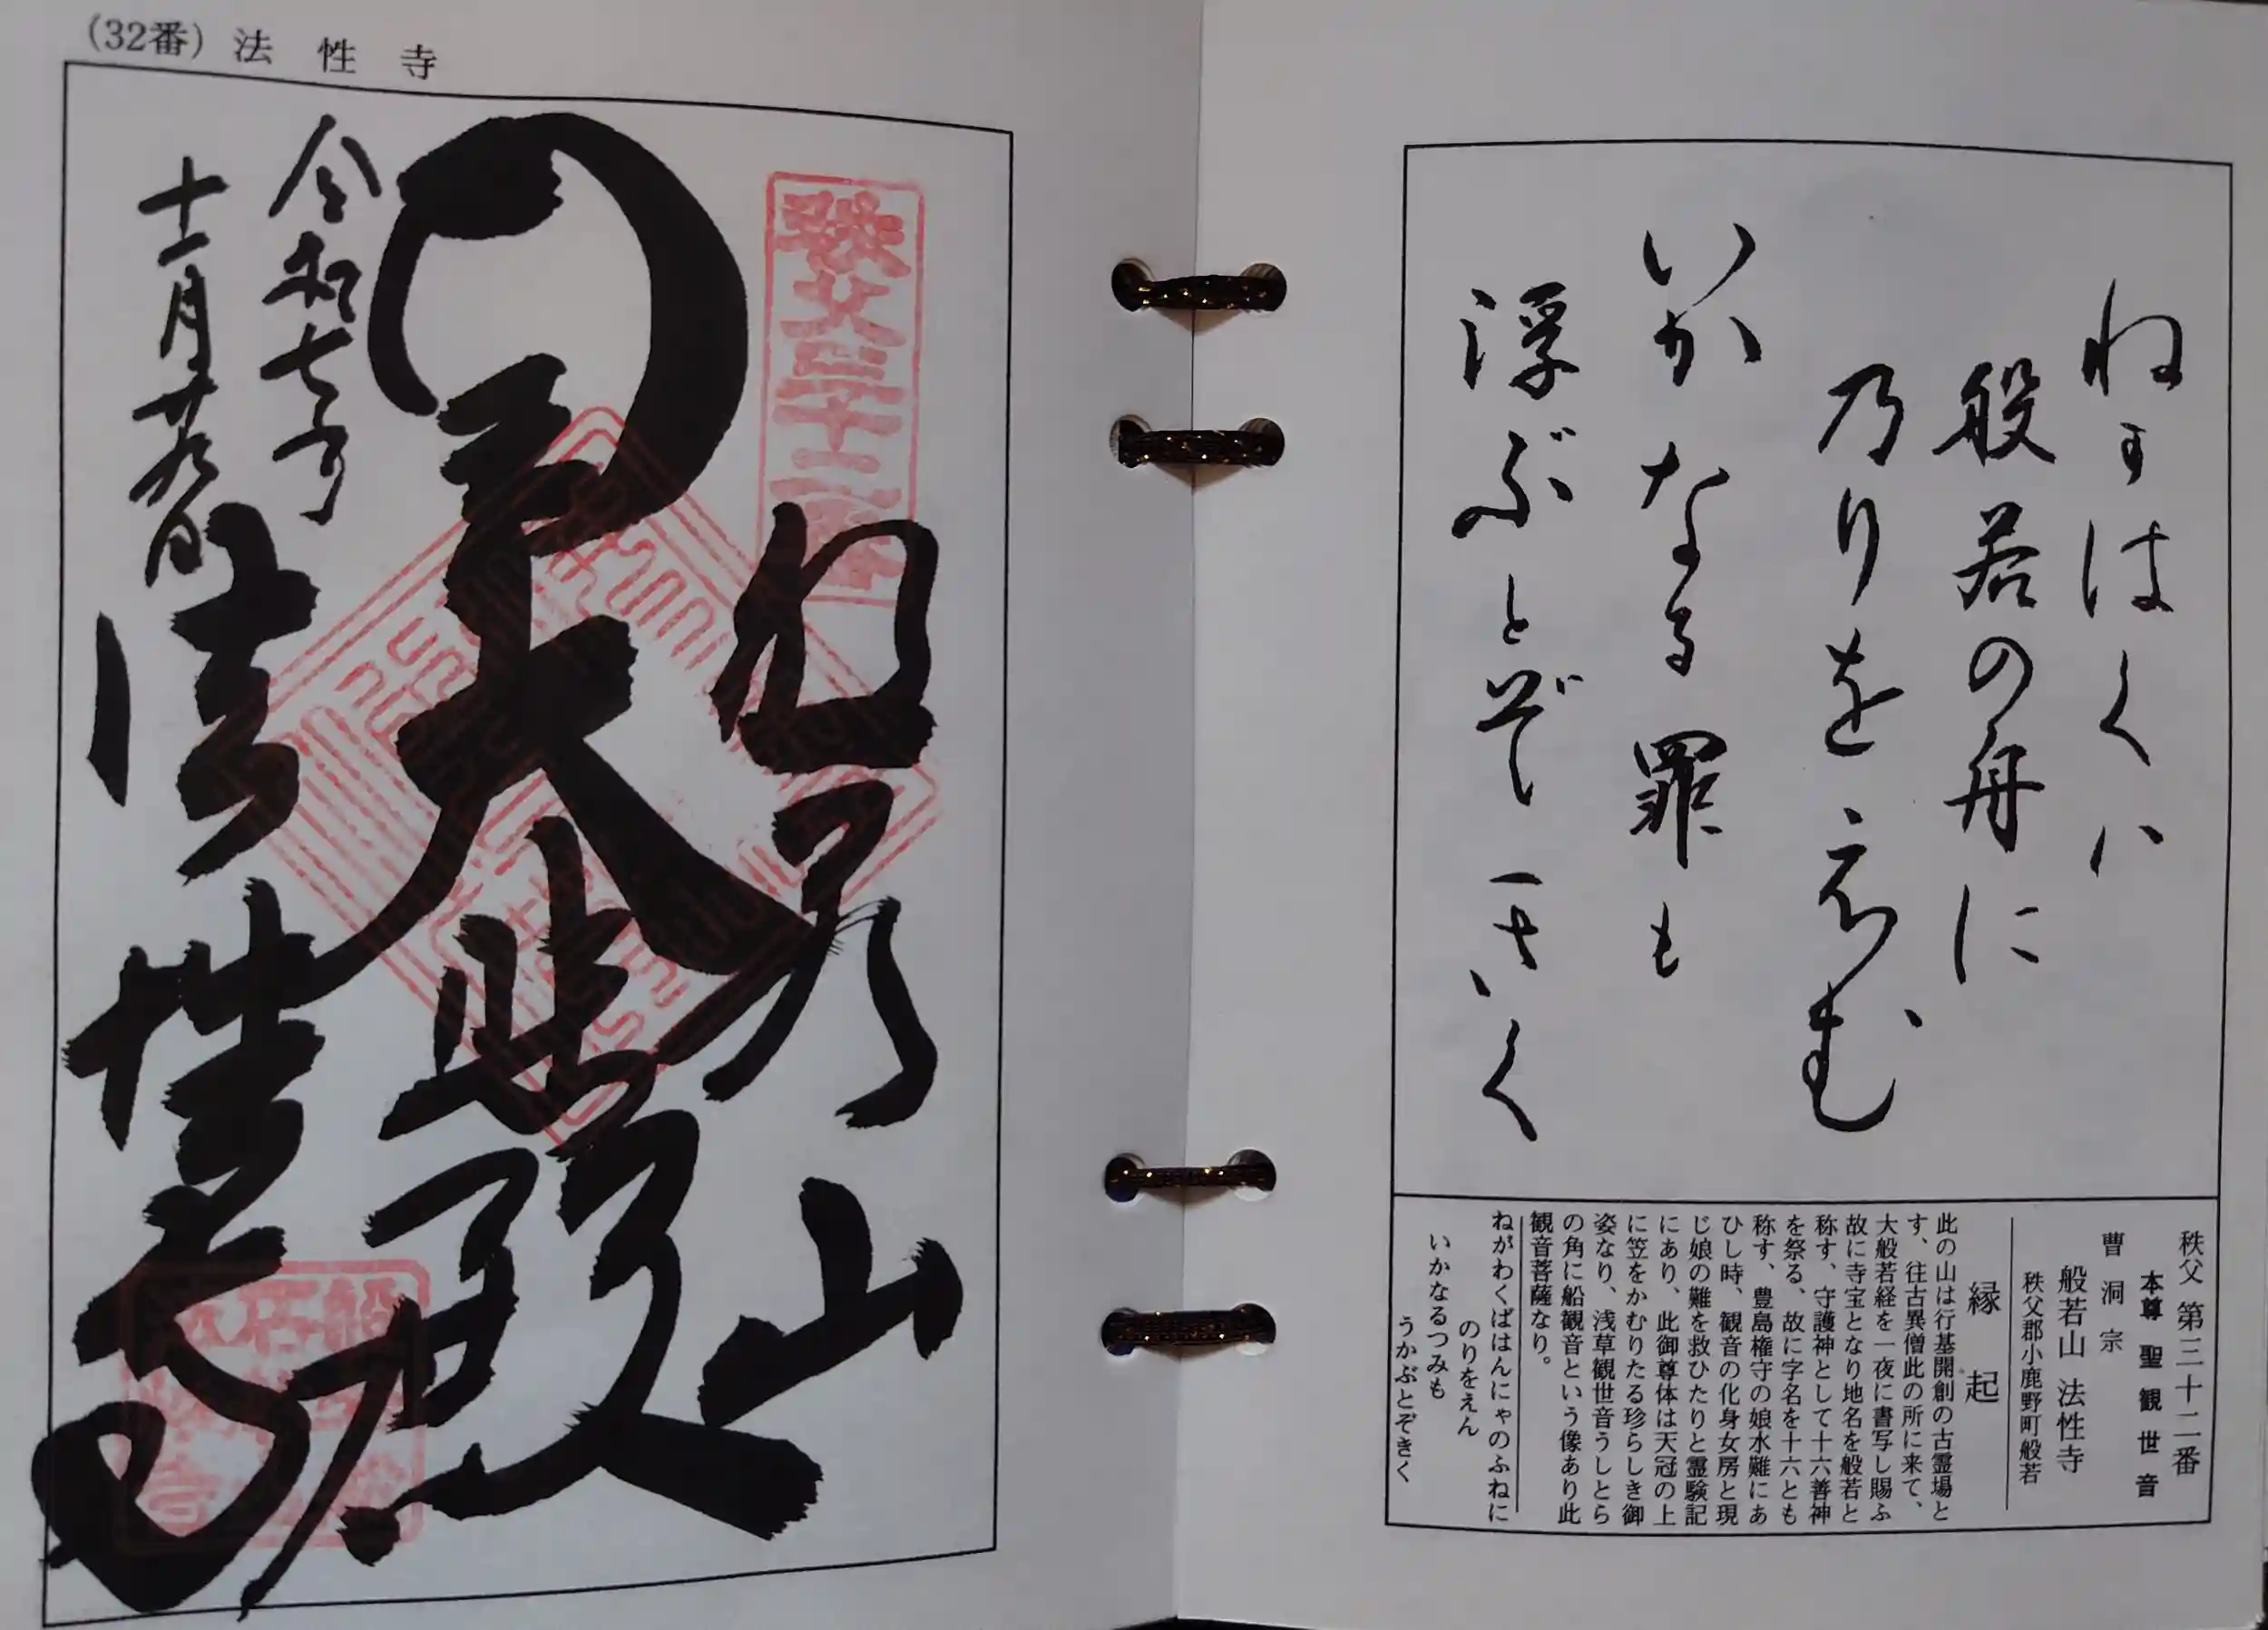 ねかはくハ
般若の舟に
乃りをえむ
いかなる罪も
浮ぶとぞきく
秩父 第三十二番
本尊 聖観世音
曹洞宗
般若山 法性寺
秩父郡小鹿野町般若
縁起
此の山は行基開創の古霊場と
す、往古異僧此の所に来て、
大般若経を一夜に書写し賜ふ
故に寺宝となり地名を般若と
称す、守護神として十六善神
を祭る、故に字名を十六とも
称す、豊島権守の娘水難にあ
ひし時、観音の化身女房と現
じ娘の難を救ひたりと霊験記
にあり、此御尊体は天冠の上
に笠をかむりたる珍らしき御
姿なり、浅草観世音うしとら
の角に船観音という像あり此
観音菩薩なり。
ねがわくばはんにゃのふねに
のりをえん
いかなるつみも
うかぶとぞきく
(32番) 法性寺
秩父三十二番
般若山
大悲殿
令和七年
十一月廿九日
法性寺